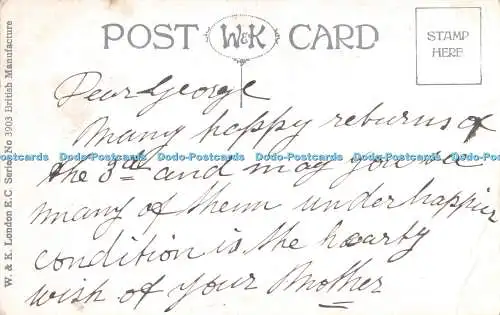 POST W&K CARD
STAMP
HERE
W. & K. London E.C Series No 3903 British Manufacture
Dear George
Many happy returns of
Dodo-Postcards Dodo-Postcards Dodo-Postcards Dodo-Postcards Dodo-Postcards
the 3rd and may you
many of them under happier
condition is the hearty
wish of your Mother